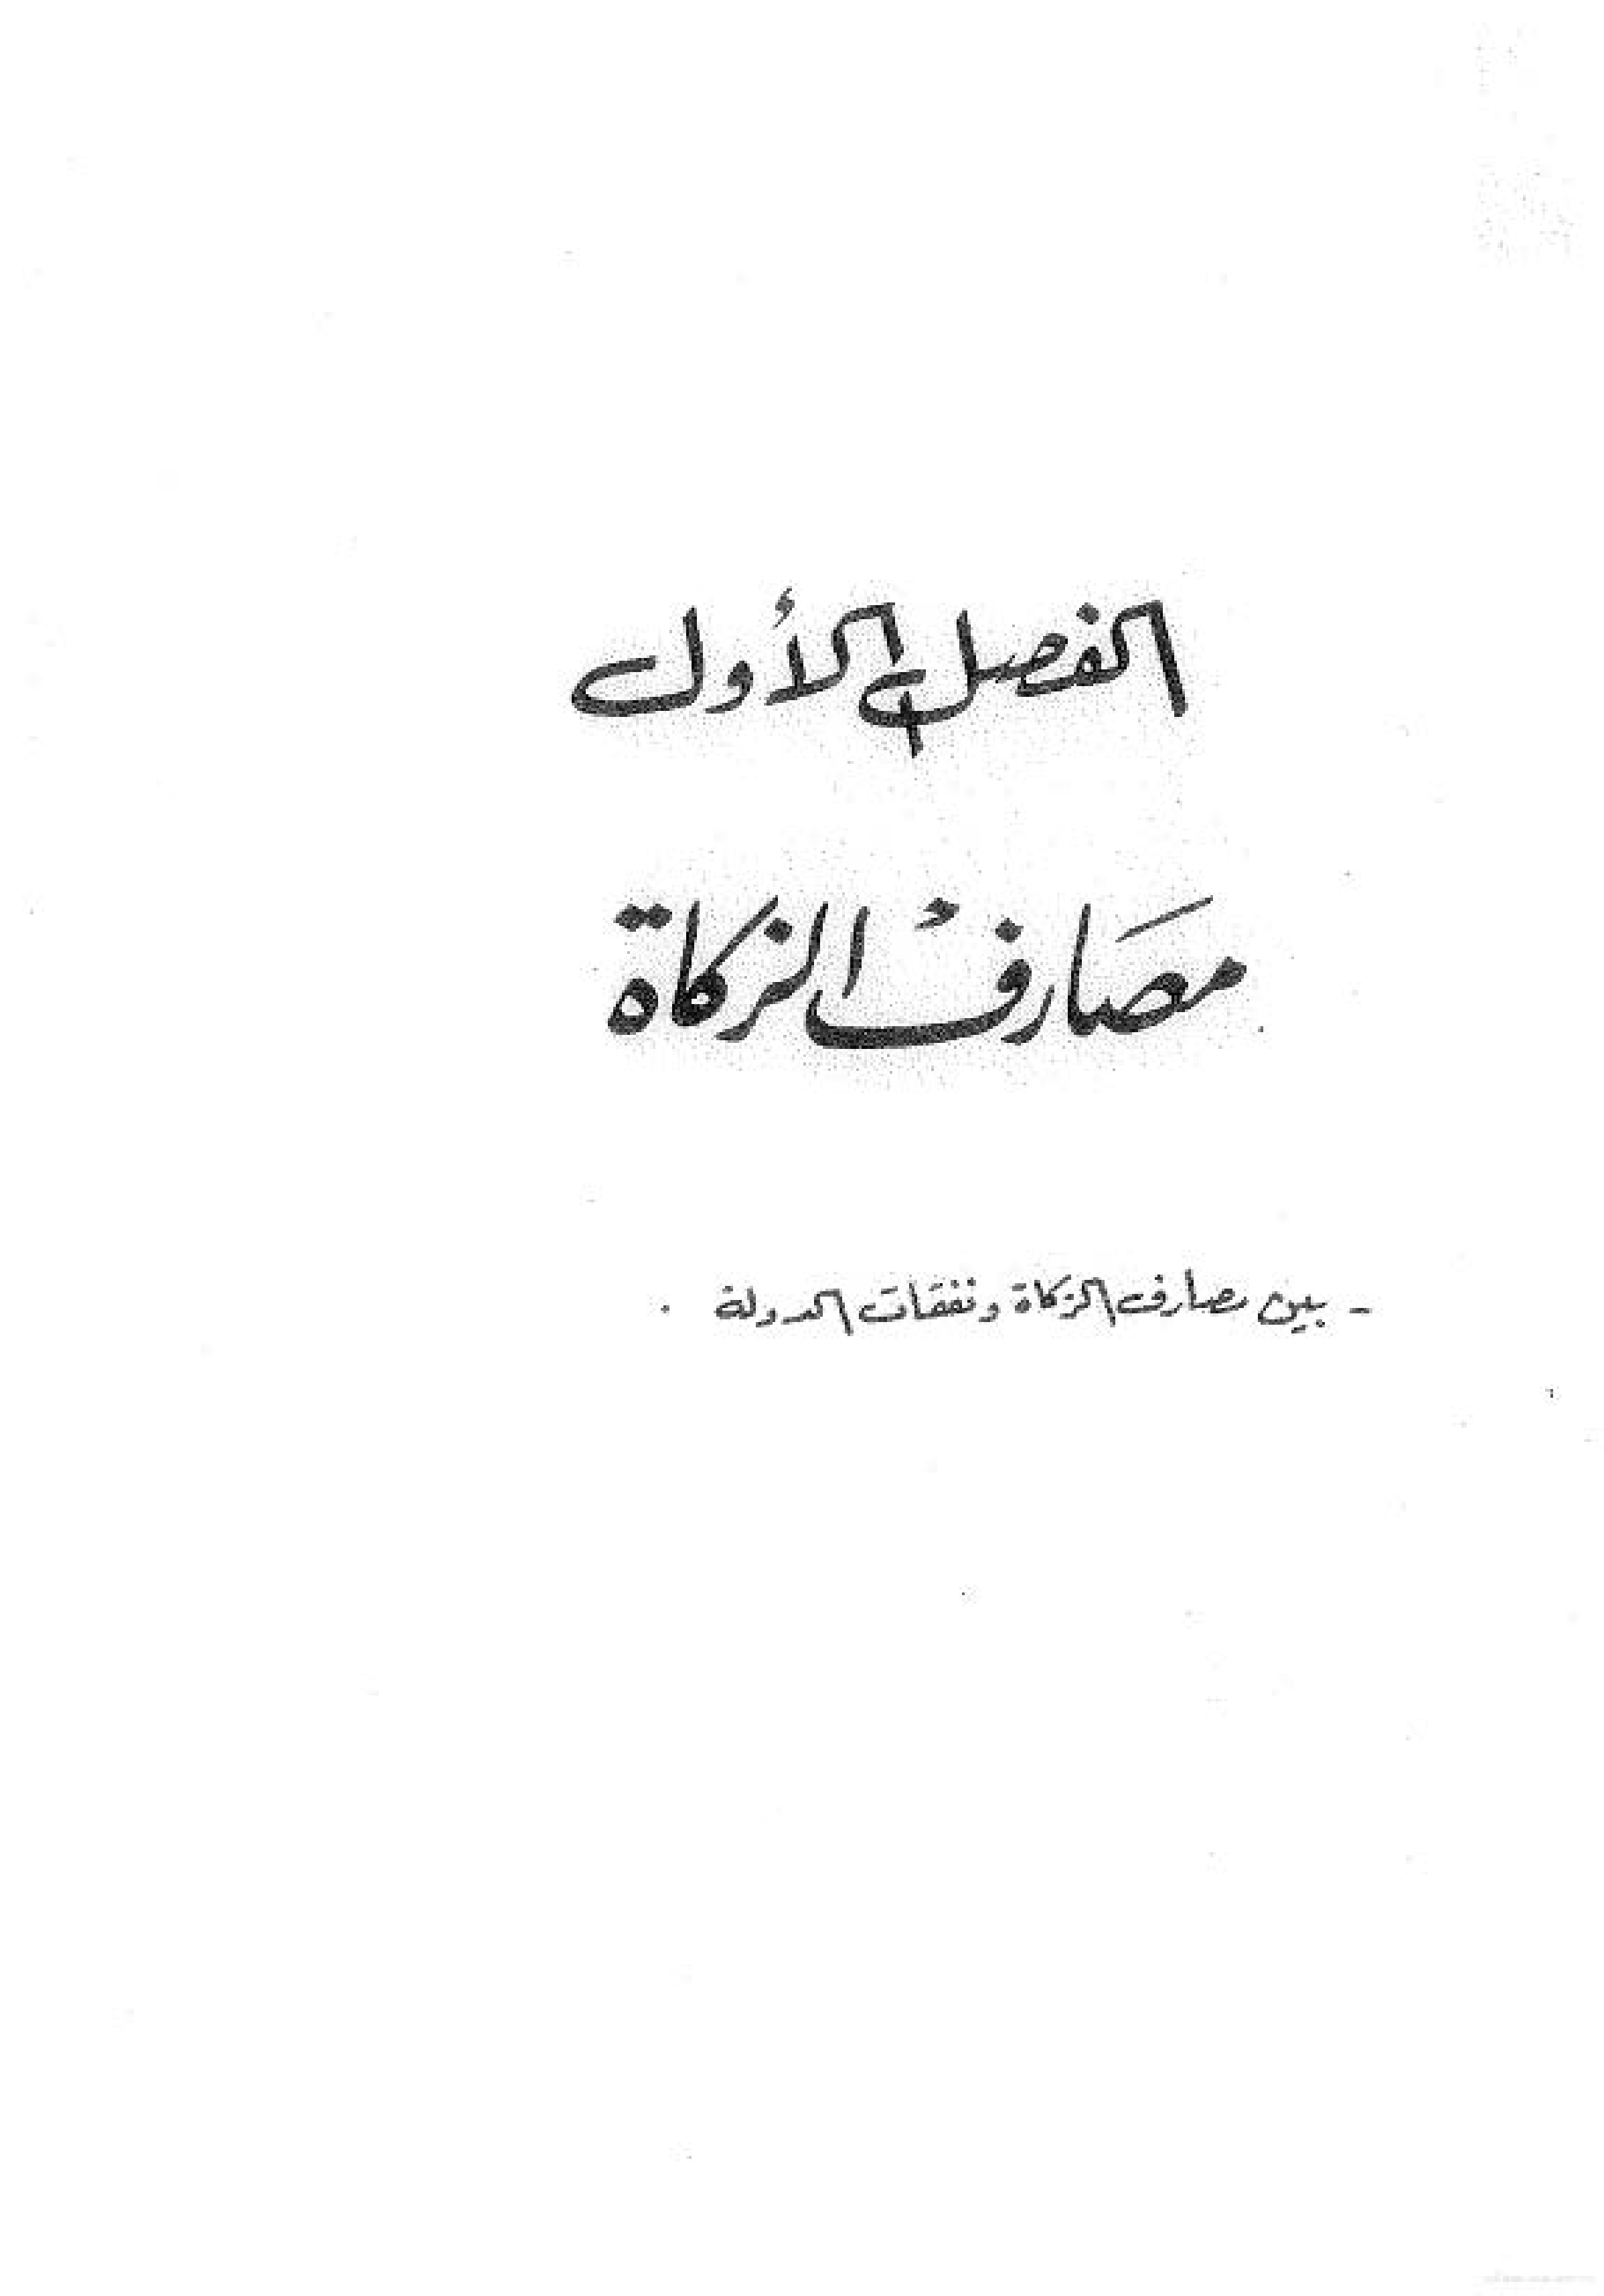 الفصل الأول
مصَارفْ الزكاة
- بين مصارف الزكاة ونفقات الدولة .